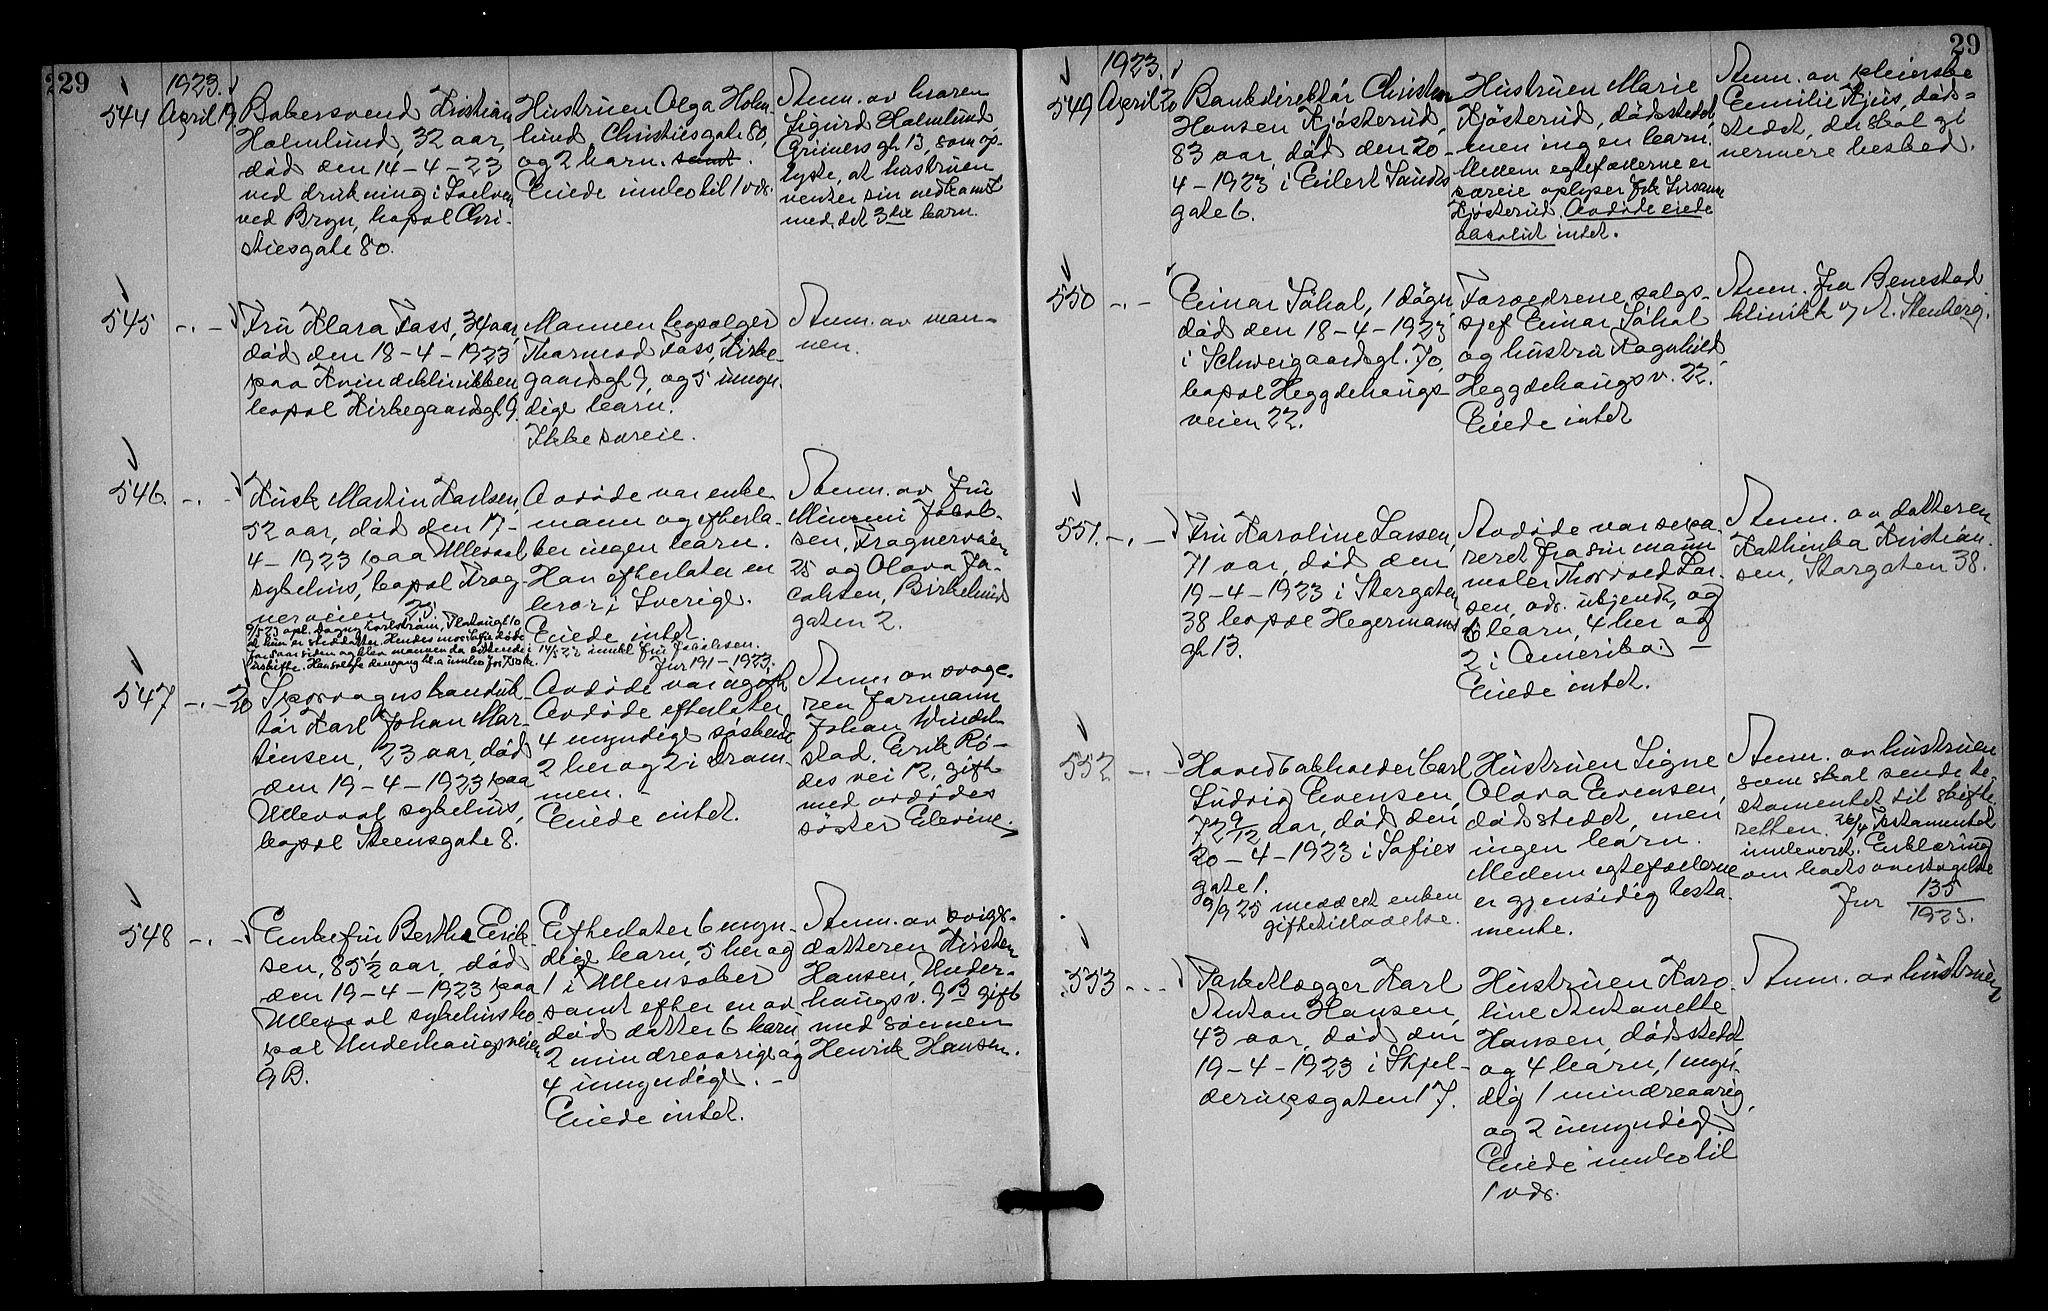 229
1923.
544 April 19.
Bakersvend Kristian
Holmlund, 32 aar,
død den 14-4-23
ved drukning i Loelven
ved Bryn, bopæl Chri-
stiesgate 80.
Hustruen Olga Holm-
lund Christiesgate 80,
og 2 barn. samt.
Eiede innbo til 1 vds.
Anm. av broren
Sigurd Holmlund
Grüners gt 13, som op-
lyste, at hustruen
venter sin nedkomst
med det 3die barn.
545 -.-
Fru Klara Fass, 34 aar,
død den 18-4-1923
paa Kvindeklinikken
bopæl Kirkegaardsgt 9.
Mannen kopsælger
Thormod Fass, Kirke-
gaardsgt 9, og 5 umyn-
dige barn.
Ikke særeie.
Anm. av man-
nen.
546. -.-
Kusk Martin Karlsen,
52 aar, død den 17-
4-1923 paa Ullevaal
sykehus, bopæl Frog-
nerveien 25.
Avdøde var enke-
mann og efterla-
ter ingen barn.
Han efterlater en
bror i Sverige.
Eiede intet.
14/5 23 innkl fru Jakobsen.
Jur 191-1923.
Anm. av fru
Minni Jakob-
sen, Frognerveien
25 og Olava Ja-
cobsen, Birkelund
gaten 2.
547 -.- 20
Sporvognskonduk-
tør Karl Johan Mar-
tinsen, 23 aar, død
den 19-4-1923 paa
Ullevaal sykehus,
bopæl Steensgate 8.
Avdøde var ugift
Avdøde efterlater
4 myndige søskende
2 her og 2 i Dram-
men.
Eiede intet.
Anm av svoge-
ren formann
Johan Windel-
stad, Erik Rø-
des vei 12, gift
med avdødes
søster Elevine.
548 -.-
Enkefru Berthe Erik-
sen, 85 1/2 aar, død
den 19-4-1923 paa
Ullevaal sykehus bo-
pæl Underhaugsveien
9 B.
Efterlater 6 myn-
dige barn, 5 her og
1 i Mensober
samt efter en av-
død datter 6 barn
2 mindreaarige og
4 umyndige. -
Eiede intet.
Anm. av svige-
datteren Kirsten
Hansen, Under-
haugsv. 9 B gift
med sønnen
Henrik Hansen.
29
1923.
549 April 20
Bankdirektør Christian
Hansen Kjøsterud,
83 aar, død den 20-
4-1923 i Eilert Sundts
gate 6.
Hustruen Marie
Kjøsterud, dødsstedet
men ingen barn.
Mellem egtefællerne er
særeie oplyser frk Susanne
Kjøsterud. Avdøde eiede
absolut intet.
Anm. av pleierske
Emilie Kjus, døds-
stedet, der skal gi
nærmere besked.
550 -.-
Einar Søhol, 1 døgn
død den 18-4-1923
i Schweigaardsgt. 70,
bopæl Heggdehaugs-
veien 22.
Forældrene salgs-
sjef Einar Søhol
og hustru Ragnhild
Heggdehaugsv. 22.
Eiede intet
Anm. fra Benestad
klinikk v/ A. Stenberg.
551. -.-
Fru Karoline Larsen,
71 aar, død den
19-4-1923 i Storgaten
38 bopæl Hegermanns
gt 13.
Avdøde var sepa-
reret fra sin mann
maler Thorvald Lar-
sen, adr. ubjendt, og
6 barn, 4 her og
2 i Amerika. -
Eiede intet.
Anm. av datteren
Kathinka Kristian-
sen, Storgaten 38.
552 -.-
Hovedbokholder Carl
Ludvig Evensen,
72 9/12 aar, død den
20-4-1923 i Sofies
gate 1.
9/9 25 meddelt enken
giftetilladelse.
Hustruen Signe
Olava Evensen,
dødsstedet, men
ingen barn.
Mellem egtefællerne
er gjensidig testa-
mente.
Anm. av hustruen
som skal sende te-
stamentet til skifte-
retten. 26/4 Testamentet
innleveret. Erklæring
om boets overtagelse
Jur 135
1923.
553 -.-
Parketlægger Karl
Anton Hansen,
43 aar, død den
19-4-1923 i Skjel-
deringsgaten 17.
Hustruen Karo-
line Antonette
Hansen, dødsstedet
og 4 barn, 1 myn-
dig 1 mindreaarig,
og 2 umyndige
Eiede innbo til
1 vds.
Anm. av hustruen